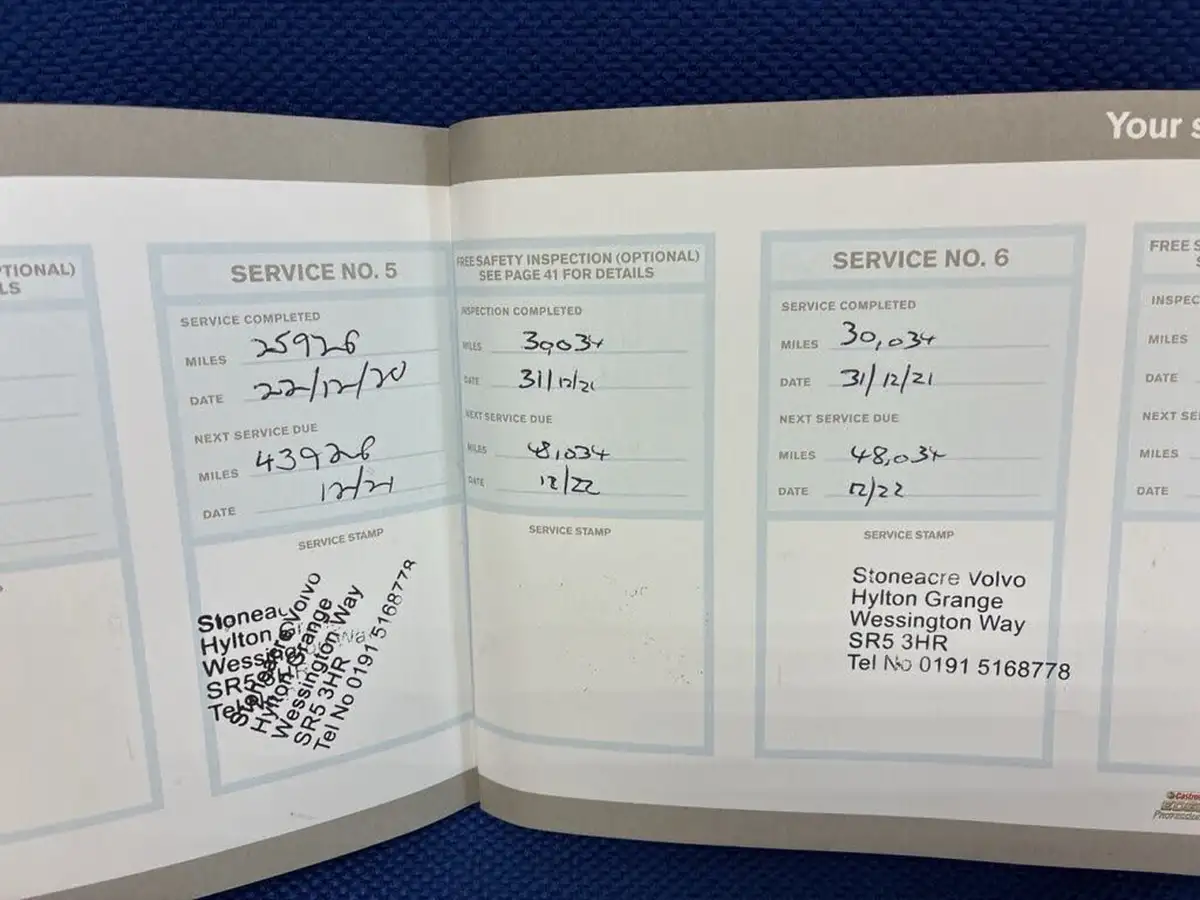 Your s
TIONAL)
LS
SERVICE NO. 5
SERVICE COMPLETED
MILES 25926
DATE 22/12/20
NEXT SERVICE DUE
MILES 43926
DATE 12/21
SERVICE STAMP
Stoneac
Hylton G
Wessing
SR5
Tel
Stoneacre Volvo
Hylton Grange
Wessington Way
SR5 3HR
Tel No 0191 5168778
FREE SAFETY INSPECTION (OPTIONAL)
SEE PAGE 41 FOR DETAILS
INSPECTION COMPLETED
MILES 30,034
DATE 31/12/21
NEXT SERVICE DUE
MILES 48,034
DATE 12/22
SERVICE STAMP
SERVICE NO. 6
SERVICE COMPLETED
MILES 30,034
DATE 31/12/21
NEXT SERVICE DUE
MILES 48,034
DATE 12/22
SERVICE STAMP
Stoneacre Volvo
Hylton Grange
Wessington Way
SR5 3HR
Tel No 0191 5168778
FREE S
INSPEC
MILES
DATE
NEXT SE
MILES
DATE
Castro
EDGE
Professiona